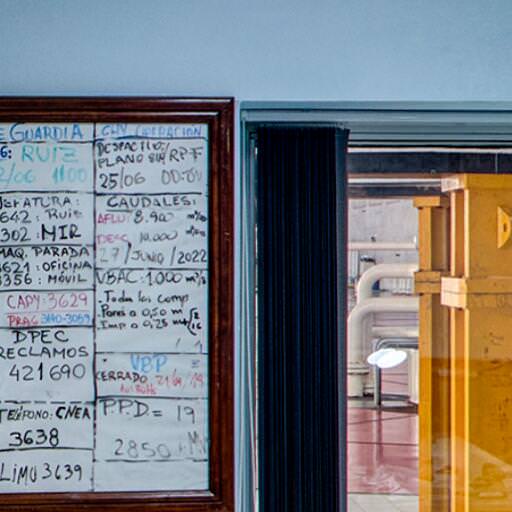 E GUARDIA
6: RUIZ
2/06 11:00
JEFATURA:
642: Ruiz
302: MIR
MAQ. PARADA
3621: OFICINA
3356: MÓVIL
CAPY: 3629
PRAG
DPEC
RECLAMOS
421690
TELÉFONO: CNEA
3638
LIMU 3639
CHY OPERACIÓN
DESPACHO:
25/06
CAUDALES:
AFLU: 8.900 m³/s
DESC. 10.000 m³/s
27/JUNIO/2022
VBAC: 1.000 m³/s
Todas las comp
0,50 m
0,25 m
VBP =
CERRADO
P.P.D. = 19
2850 MW